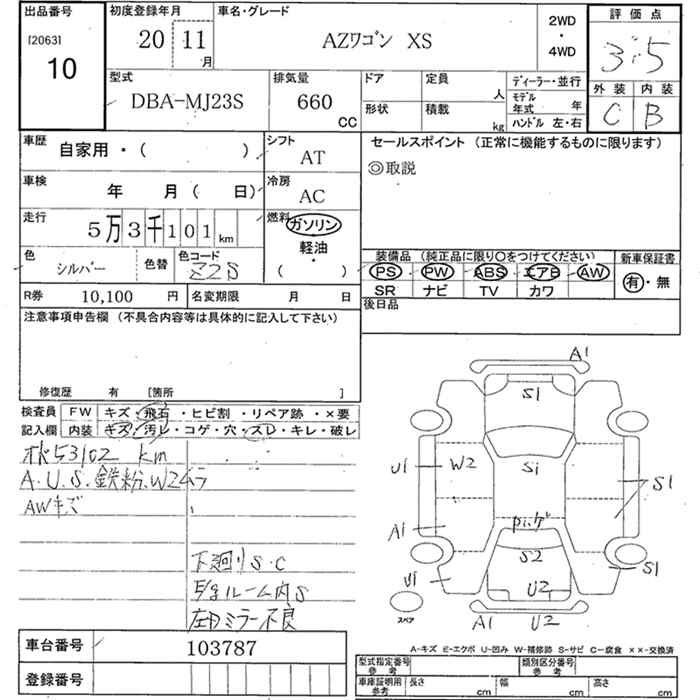 出品番号
[2063]
10
初度登録年月
20 11 月
車名・グレード
AZワゴン XS
2WD
・
4WD
評価点
3.5
外装 内装
C B
型式
DBA-MJ23S
排気量
660
CC
ドア
形状
定員
人
積載
kg
ディーラー・並行
モデル年式 年
ハンドル 左・右
車歴
自家用・( )
シフト
AT
セールスポイント (正常に機能するものに限ります)
◎取説
車検
年 月( 日)
冷房
AC
走行
5万3千101km
燃料
ガソリン
軽油
・
( )
色
シルバー
色替
色コード
Z2S
装備品 (純正品に限り○をつけてください)
PS PW ABS エアB AW
SR ナビ TV カワ
新車保証書
有・無
R券 10,100 円
名変期限 月 日
後日品
注意事項申告欄 (不具合内容等は具体的に記入して下さい)
修復歴 有 [箇所 ]
検査員
記入欄
FW キズ・飛石・ヒビ割・リペア跡・×要
内装 キズ・汚レ・コゲ・穴・スレ・キレ・破レ
53102 km
A.U.S.鉄粉.W2ムラ
AWキズ
下廻りS.C
ルーム内S
ミラー不良
A1
S1
U1
W2
S1
S1
A1
S2
U1
U2
S1
A1
U2
スペア
A-キズ E-エクボ U-凹み W-補修跡 S-サビ C-腐食 ××-交換済
車台番号 103787
登録番号
型式指定番号
参考
類別区分番号
参考
車庫証明用
参考
長さ cm
幅 cm
高さ cm